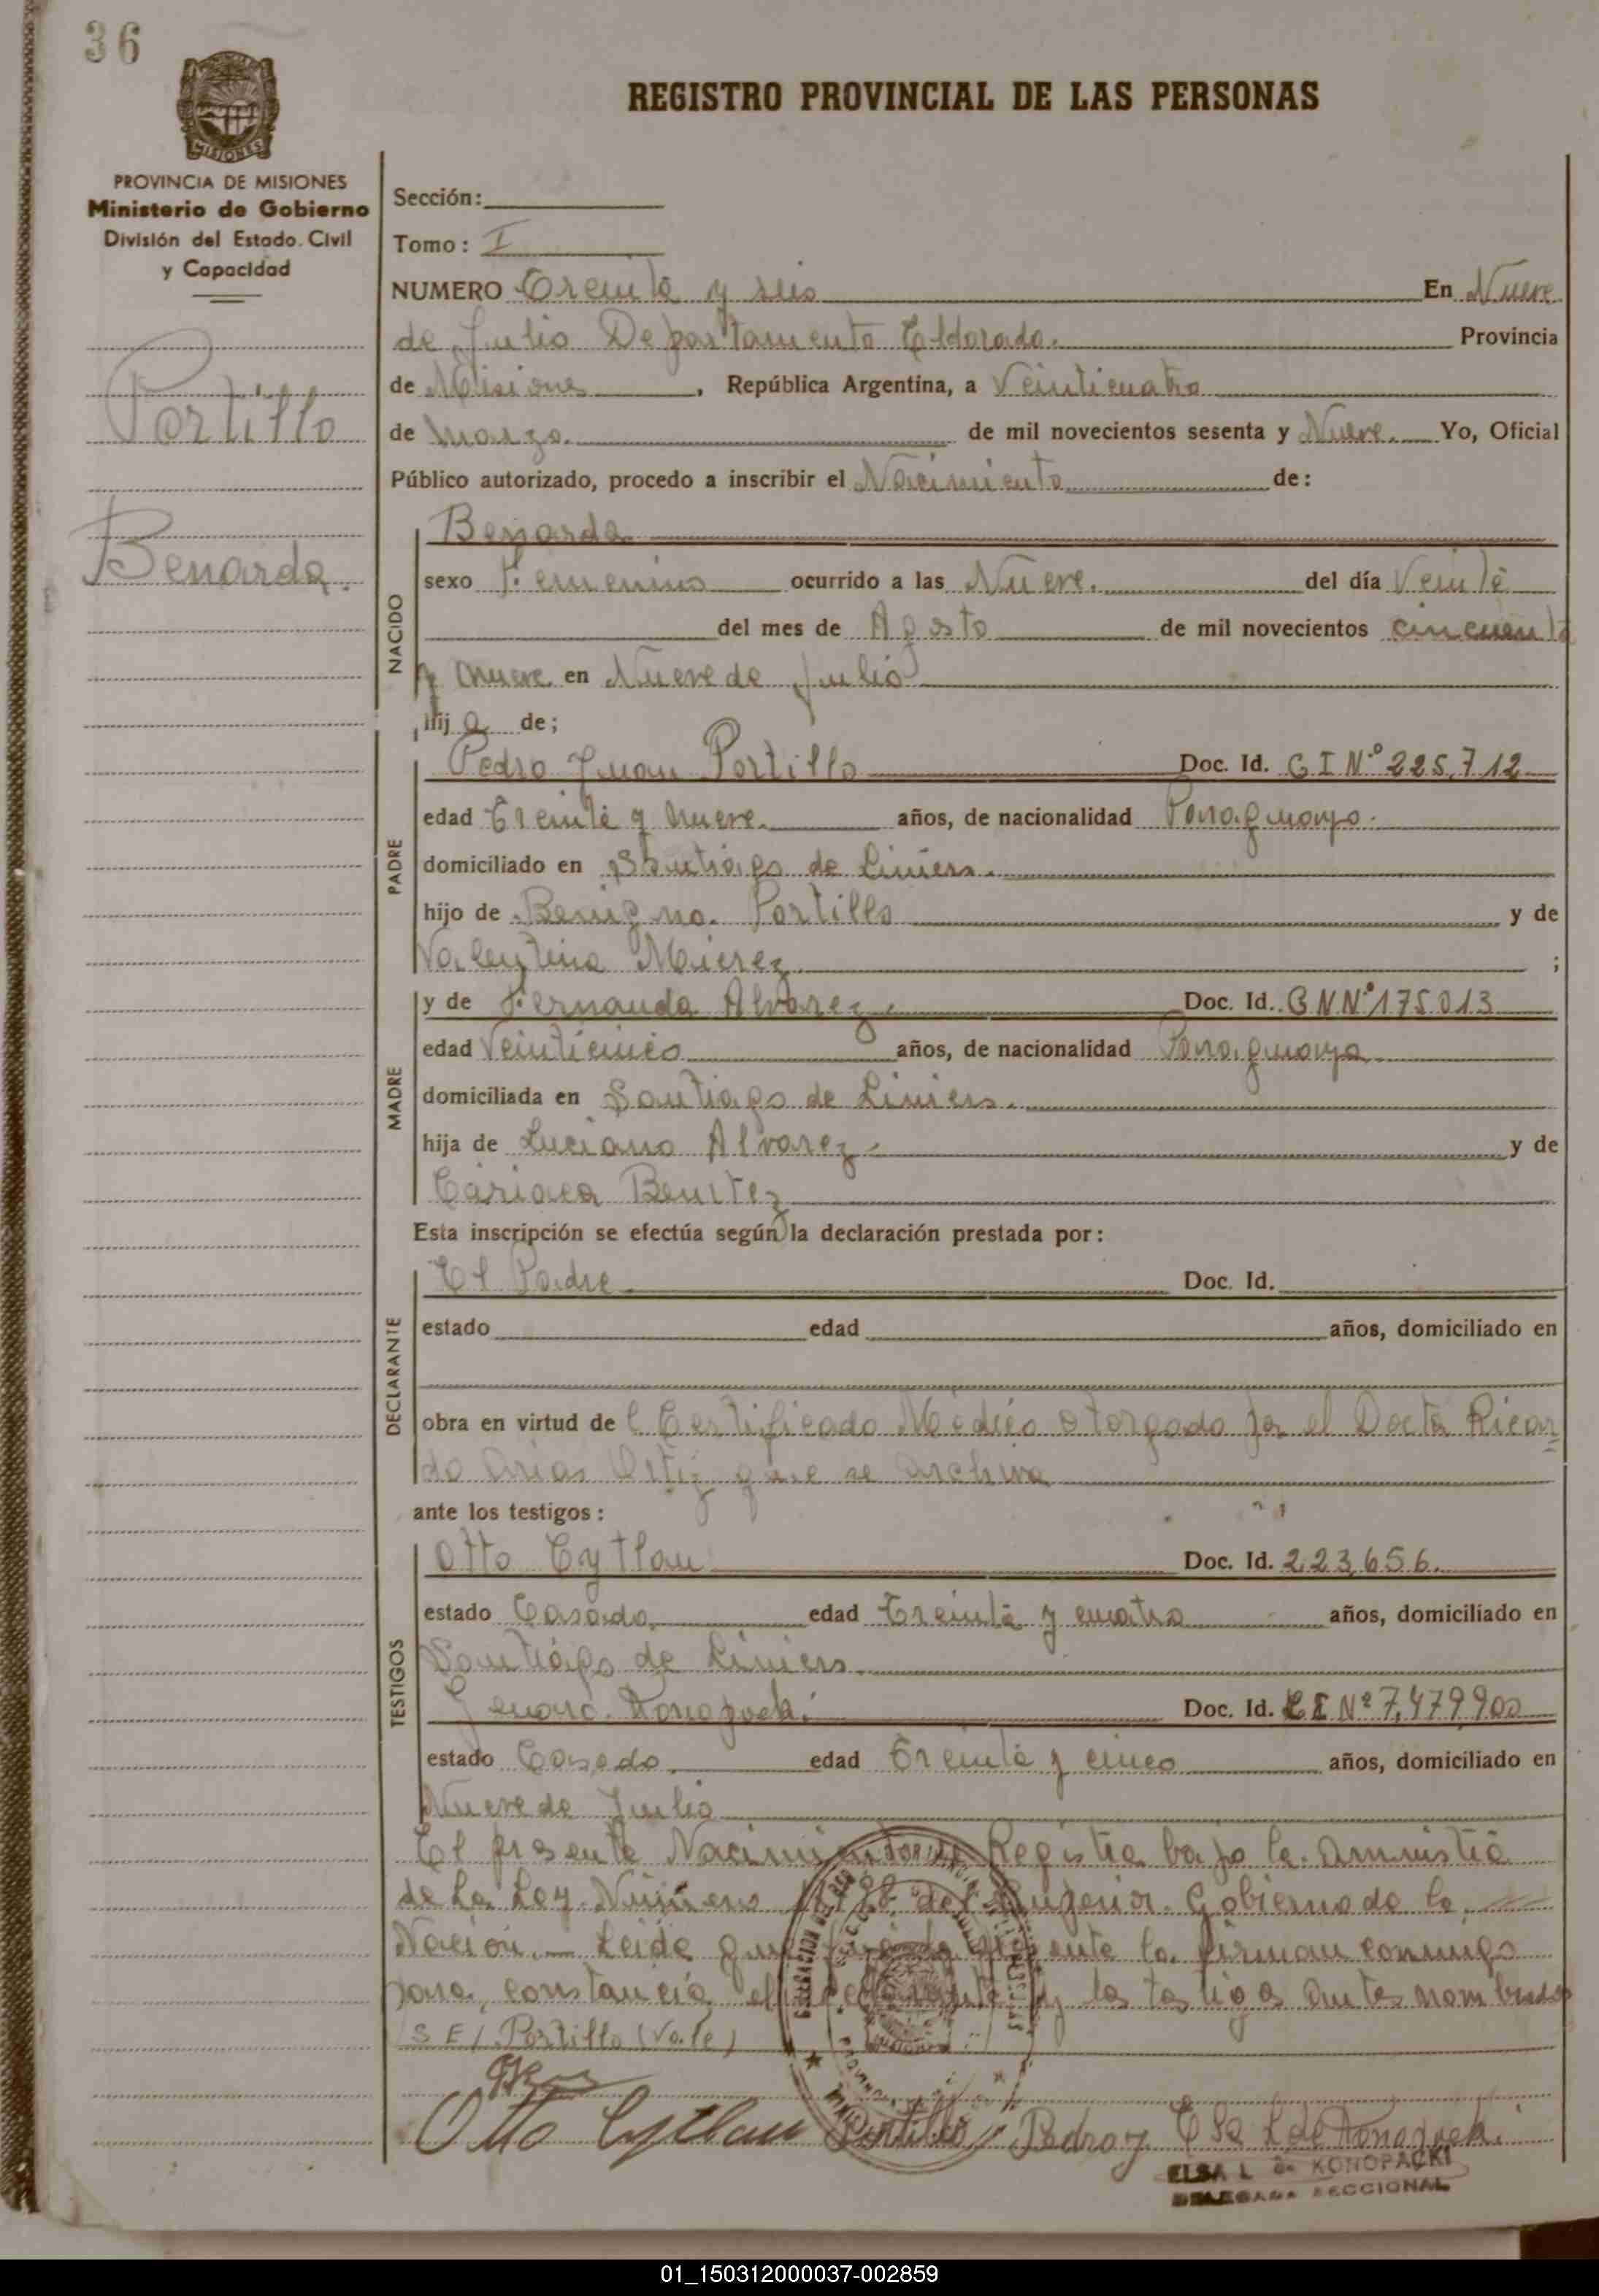 36
MISIONES
PROVINCIA DE MISIONES
Ministerio de Gobierno
División del Estado Civil
y Capacidad
Portillo
Benarda.
REGISTRO PROVINCIAL DE LAS PERSONAS
Sección:
Tomo: I
NUMERO Treinta y seis En Nueve
de Julio Departamento Eldorado. Provincia
de Misiones, República Argentina, a Veinticuatro
de Marzo. de mil novecientos sesenta y Nueve. Yo, Oficial
Público autorizado, procedo a inscribir el Nacimiento de:
NACIDO
Benarda
sexo Femenino ocurrido a las Nueve. del día Veinte
del mes de Agosto de mil novecientos cincuenta
y nueve en Nueve de Julio
hija de;
PADRE
Pedro Juan Portillo Doc. Id. C I Nº 225,712
edad Treinta y nueve. años, de nacionalidad Paraguayo.
domiciliado en Santiago de Liniers.
hijo de Benigno. Portillo y de
Valentina Mierez ;
MADRE
y de Fernanda Alvarez. Doc. Id. C N Nº 175.013
edad Veinticinco años, de nacionalidad Paraguaya
domiciliada en Santiago de Liniers.
hija de Luciano Alvarez y de
Benitez
Esta inscripción se efectúa según la declaración prestada por:
DECLARANTE
El Padre Doc. Id.
estado edad años, domiciliado en
obra en virtud de l Certificado Médico otorgado por el Doctor Ricar=
do Arias Ortiz que se archiva
ante los testigos:
TESTIGOS
Otto Cytlau Doc. Id. 223,656.
estado Casado edad Treinta y cuatro años, domiciliado en
Santiago de Liniers.
Genaro. Konopacki Doc. Id. C I Nº 7,479,900
estado Casado. edad Treinta y cinco años, domiciliado en
Nueve de Julio
El presente Nacimiento Registra bajo la Amnistia
de La Ley Número del Superior Gobierno de la
Nación. Leida que fué la presente la firman conmigo
para constancia el declarante y los testigos antes nombrados
S E / Portillo (Vale)
Otto Cytlau Portillo Pedro J Elsa L de Konopacki
ELSA L de KONOPACKI
DELEGADA SECCIONAL
01_150312000037-002859